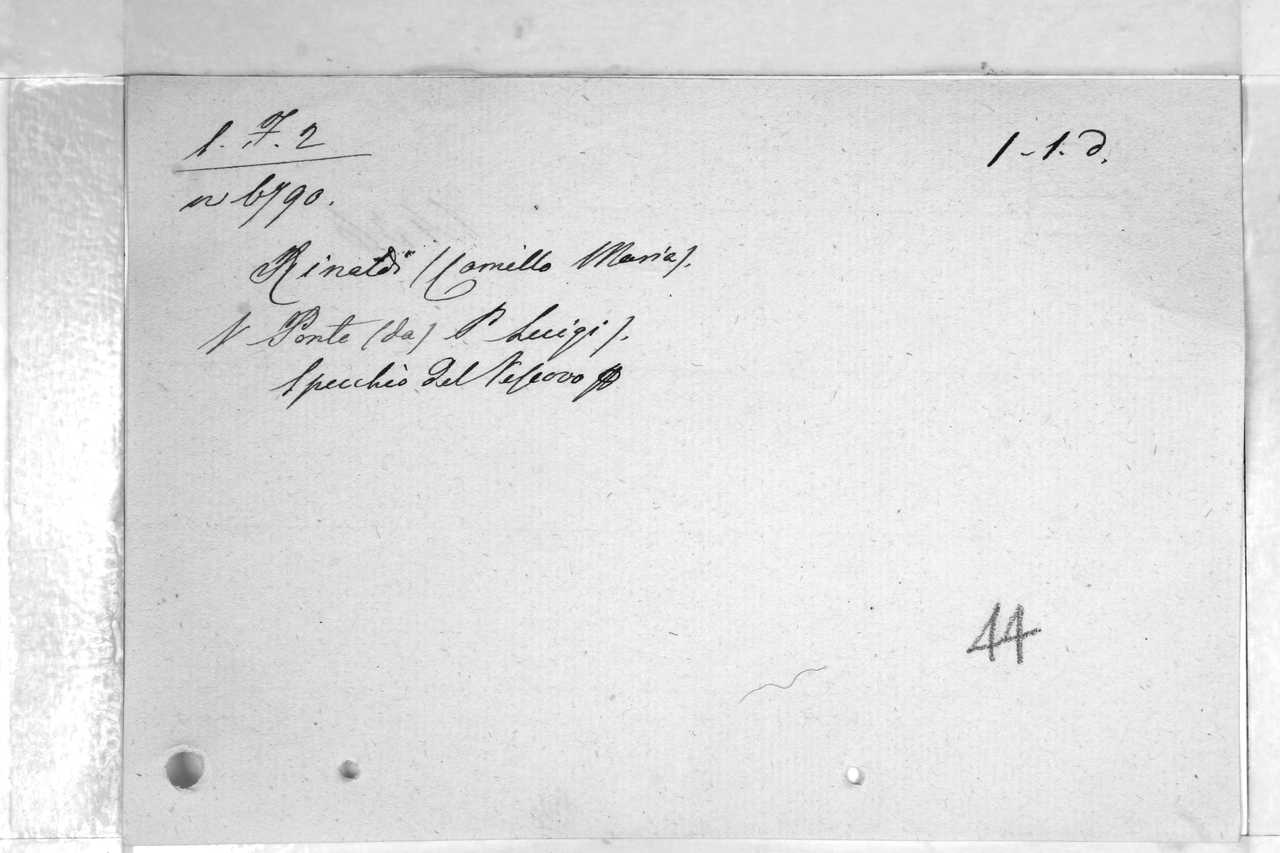 1. F. 2
1-1. d.
n 6790.
Rinaldi (Camillo Maria).
V Ponte (da) P Luigi).
Specchio del Vescovo
44